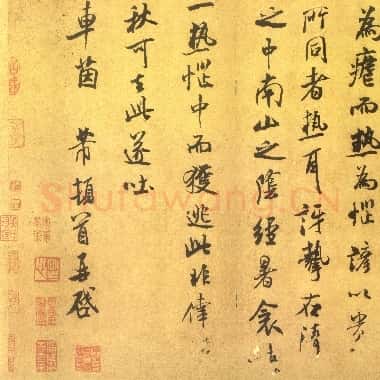 為瘧而熱為惱諺以貴
所同者熱耳訝挈在清
之中南山之陰經暑衾
一熱惱中而獲逃此非倖
秋可去此遂吐
車茵 芾頓首再啓
Shufawang.CN